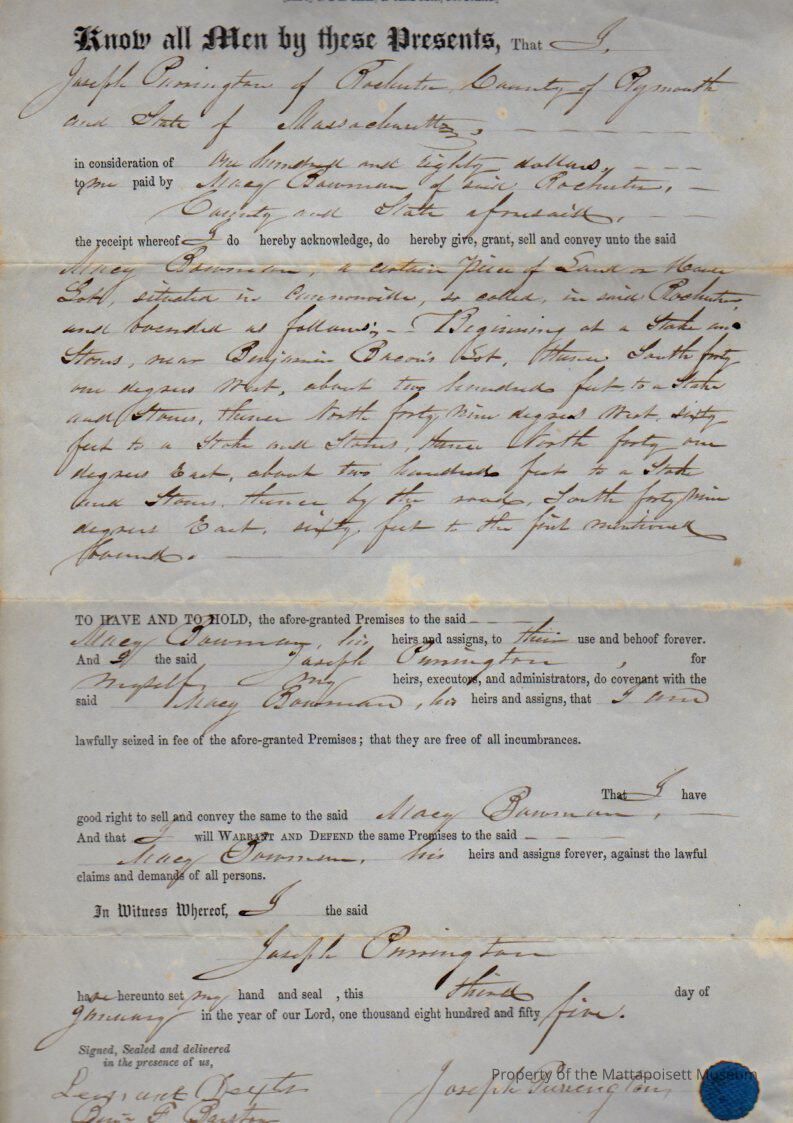 Know all Men by these Presents, That I,
Joseph Purrington of Rochester, County of Plymouth
and State of Massachusetts,
in consideration of one hundred and eighty dollars,
to me paid by Macy Bowman of said Rochester,
County and State aforesaid,
the receipt whereof I do hereby acknowledge, do hereby give, grant, sell and convey unto the said
Macy Bowman, a certain piece of Land or House
Lot, situated in Cannonville, so called, in said Rochester,
and bounded as follows; - Beginning at a Stake and
Stones, near Benjamin Bacon's Lot, thence South forty
one degrees West, about two hundred feet to a Stake
and Stones, thence North forty nine degrees West, sixty
feet to a Stake and Stones, thence North forty one
degrees East, about two hundred feet to a Stake
and Stones, thence by the road, South forty nine
degrees East, sixty feet to the first mentioned
bound.
TO HAVE AND TO HOLD, the afore-granted Premises to the said
Macy Bowman, his heirs and assigns, to their use and behoof forever.
And I the said Joseph Purrington, for
myself, my heirs, executors, and administrators, do covenant with the
said Macy Bowman, his heirs and assigns, that I am
lawfully seized in fee of the afore-granted Premises; that they are free of all incumbrances.
That I have
good right to sell and convey the same to the said Macy Bowman,
And that I will WARRANT AND DEFEND the same Premises to the said
Macy Bowman, his heirs and assigns forever, against the lawful
claims and demands of all persons.
In Witness Whereof, I the said
Joseph Purrington
have hereunto set my hand and seal, this third day of
January in the year of our Lord, one thousand eight hundred and fifty five.
Signed, Sealed and delivered
in the presence of us,
Dexter
Joseph Purrington
Benj. F. Barstow
Property of the Mattapoisett Museum